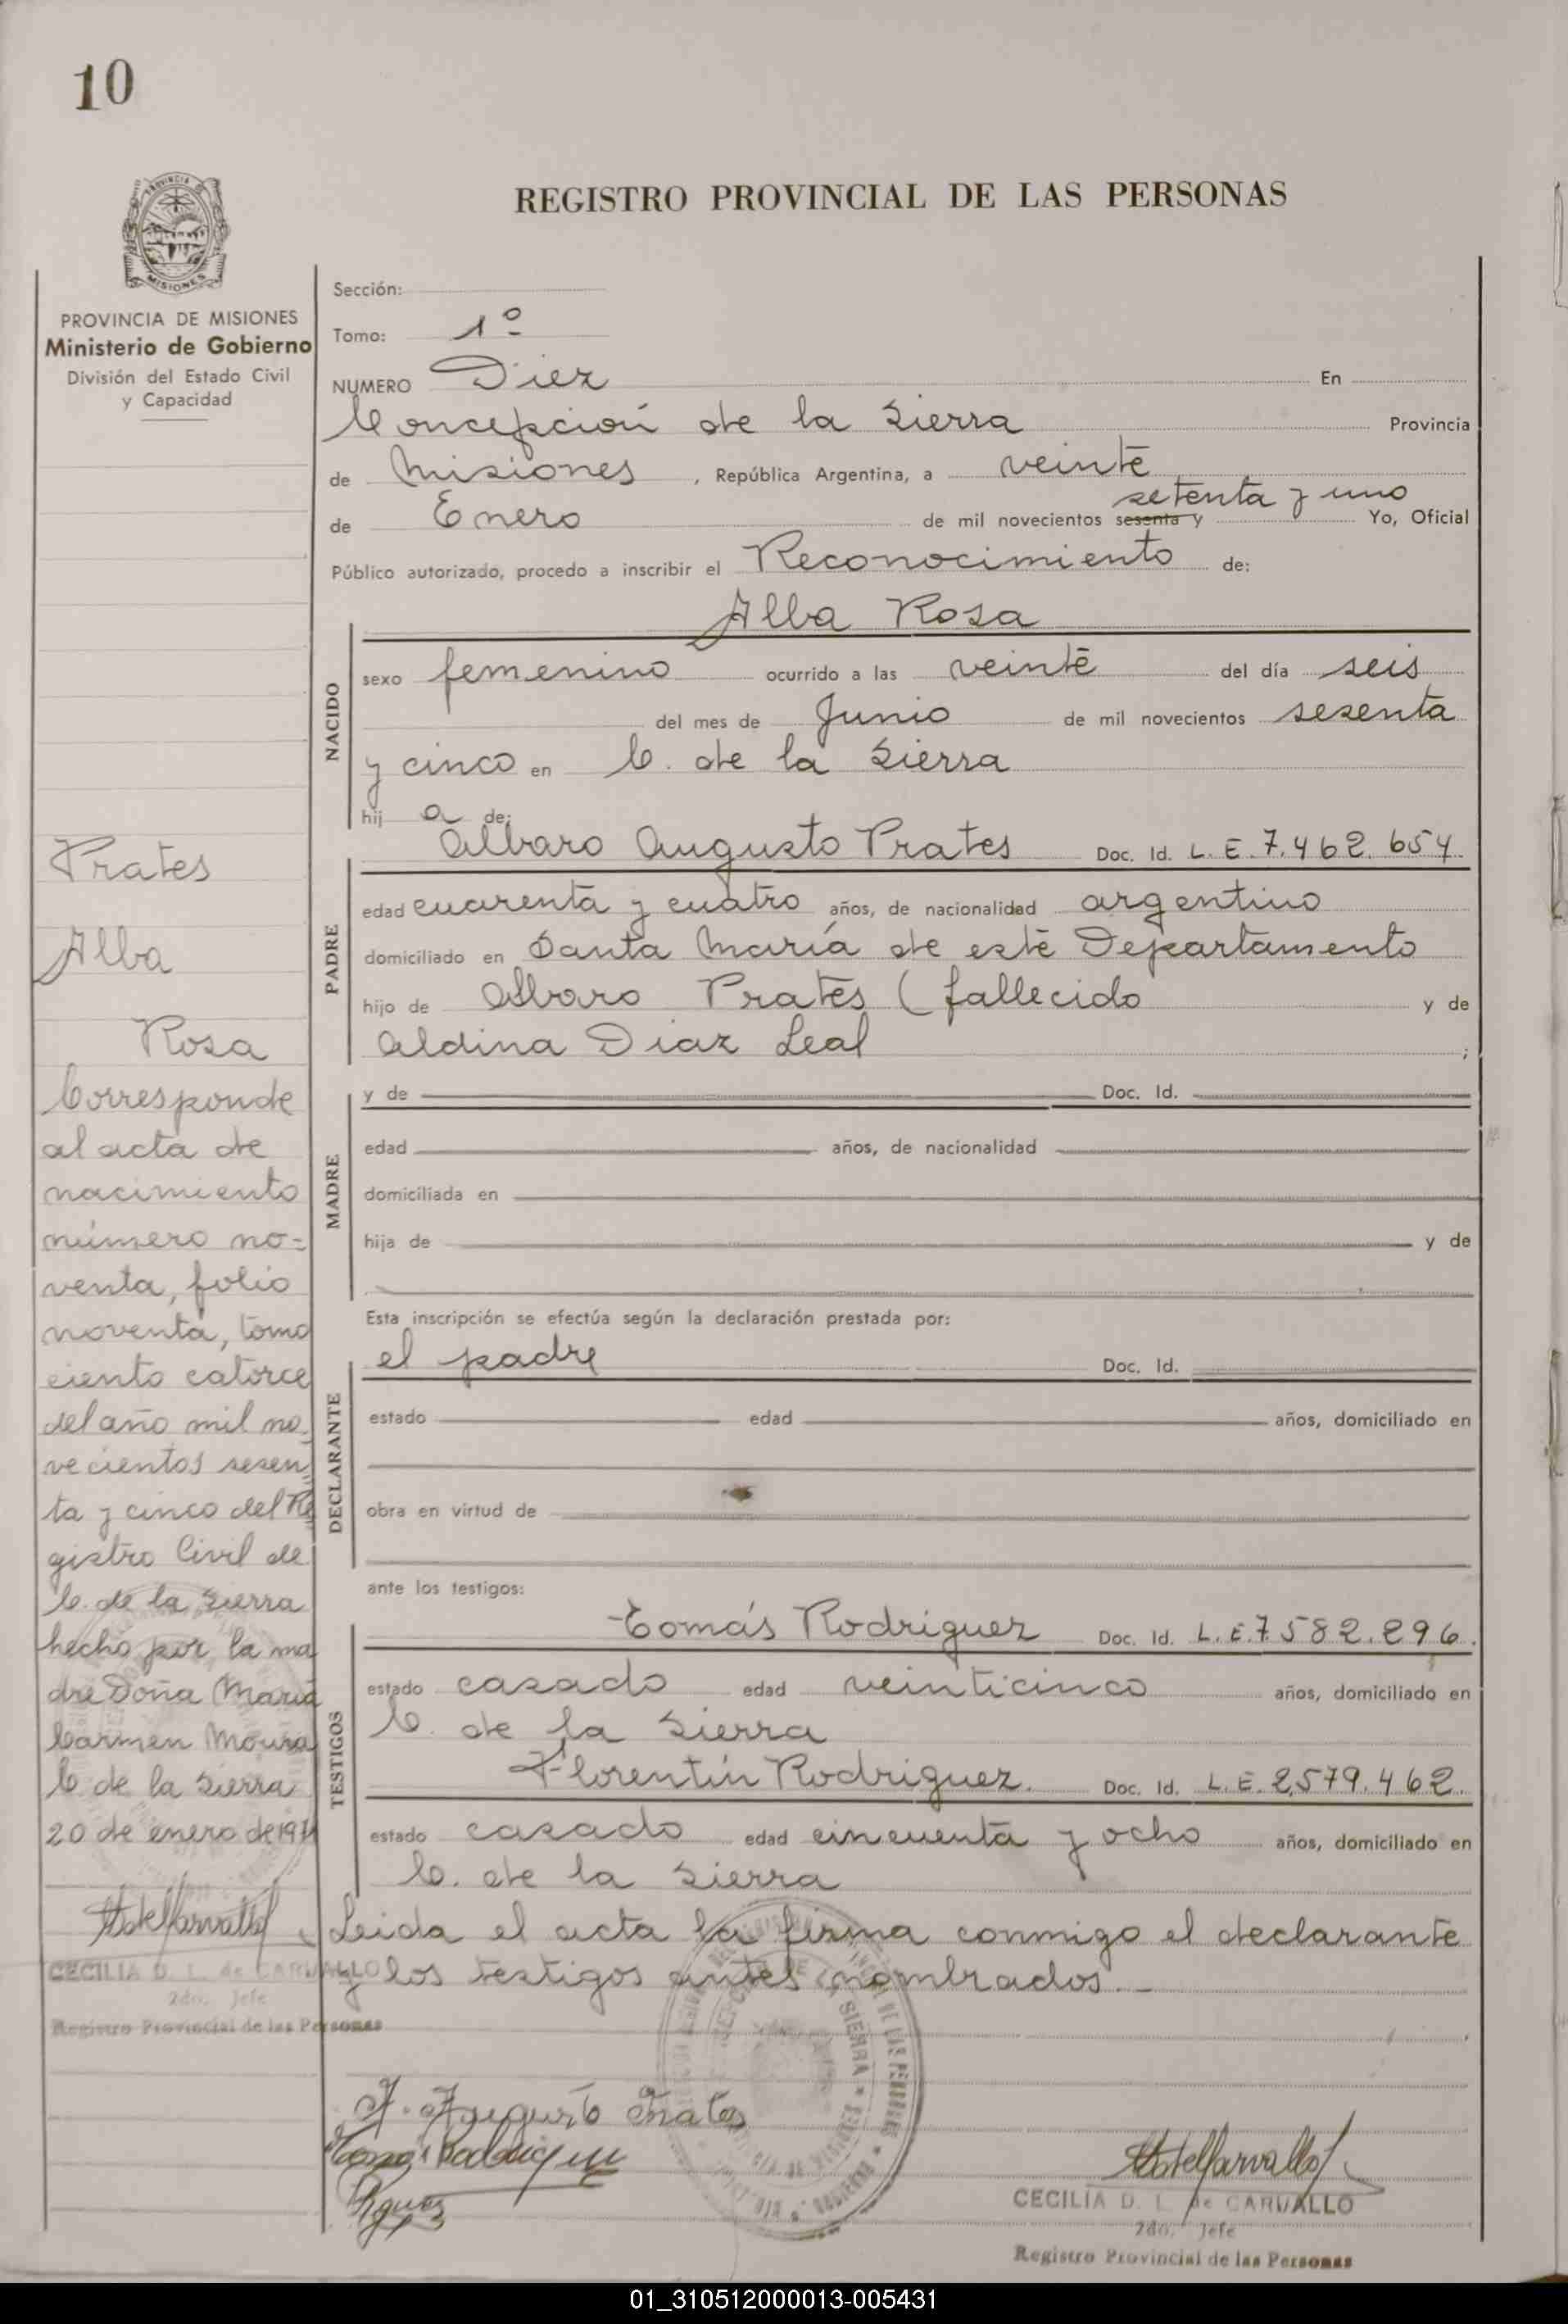 10
PROVINCIA DE MISIONES
Ministerio de Gobierno
División del Estado Civil
y Capacidad
REGISTRO PROVINCIAL DE LAS PERSONAS
Sección:
Tomo: 1º
NUMERO Diez En
Concepción de la Sierra Provincia
de Misiones, República Argentina, a veinte
setenta y uno
de Enero de mil novecientos sesenta y Yo, Oficial
Público autorizado, procedo a inscribir el Reconocimiento de:
Alba Rosa
NACIDO
sexo femenino ocurrido a las veinte del día seis
del mes de Junio de mil novecientos sesenta
y cinco en C. de la Sierra
hija de:
PADRE
Alvaro Augusto Prates Doc. Id. L. E. 7.462.654
edad cuarenta y cuatro años, de nacionalidad argentino
domiciliado en Santa María de este Departamento
hijo de Alvaro Prates (fallecido y de
Aldina Diaz Leal ;
MADRE
y de Doc. Id.
edad años, de nacionalidad
domiciliada en
hija de y de
Esta inscripción se efectúa según la declaración prestada por:
DECLARANTE
el padre Doc. Id.
estado edad años, domiciliado en
obra en virtud de
ante los testigos:
TESTIGOS
Tomás Rodriguez Doc. Id. L. E. 7.582.296.
estado casado edad veinticinco años, domiciliado en
C. de la Sierra
Florentín Rodriguez. Doc. Id. L. E. 2,579.462.
estado casado edad cincuenta y ocho años, domiciliado en
C. de la Sierra
Leida el acta la firma conmigo el declarante
y los testigos antes nombrados.-
A. Augusto Prates
CECILIA D. L. de CARVALLO
2do. Jefe
Registro Provincial de las Personas
Prates
Alba
Rosa
Corresponde
al acta de
nacimiento
número no=
venta, folio
noventa, tomo
ciento catorce
del año mil no
vecientos sesen
ta y cinco del Re
gistro Civil de
C. de la Sierra
hecho por la ma
dre Doña María
Carmen Moura
C de la Sierra
20 de enero de 1971
CECILIA D. L. de CARVALLO
2do. Jefe
Registro Provincial de las Personas
01_310512000013-005431